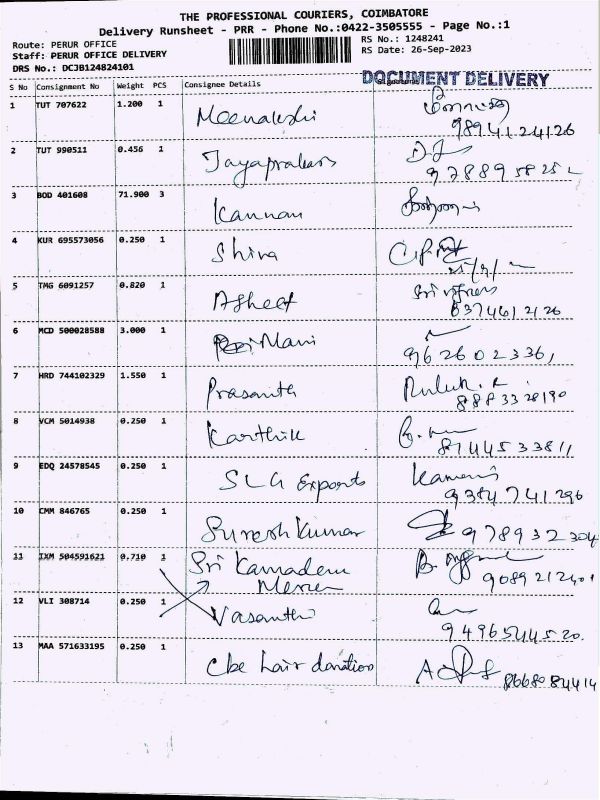 THE PROFESSIONAL COURIERS, COIMBATORE
Delivery Runsheet - PRR - Phone No.:0422-3505555 - Page No.:1
Route: PERUR OFFICE RS No.: 1248241
Staff: PERUR OFFICE DELIVERY RS Date: 26-Sep-2023
DRS No.: DCJB124824101
DOCUMENT DELIVERY
S No Consignment No Weight PCS Consignee Details Signature
1 TUT 707622 1.200 1 Meenakshi
9894124126
2 TUT 990511 0.456 1 Jayaprakash
3 BOD 401608 71.900 3 Kannan
4 KUR 695573056 0.250 1 Shiva
5 TMG 6091257 0.820 1
6374612126
6 MCD 500028588 3.000 1 Mani
9626023361
7 HRD 744102329 1.550 1 Prasanth
8883328190
8 VCM 5014938 0.250 1 Karthik
8144533811
9 EDQ 24578545 0.250 1 SLG Exports
9384741296
10 CMM 846765 0.250 1 Suresh Kumar
978932304
11 IXM 504591621 0.710 1 Sri Kamadenu
9089212401
12 VLI 308714 0.250 1 Vasanthi
9496544520
13 MAA 571633195 0.250 1 Cbe hair donation
8668084414